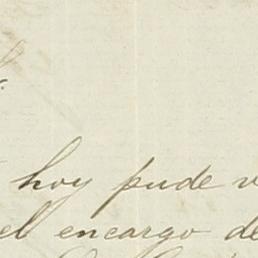 hoy pude v
el encargo de